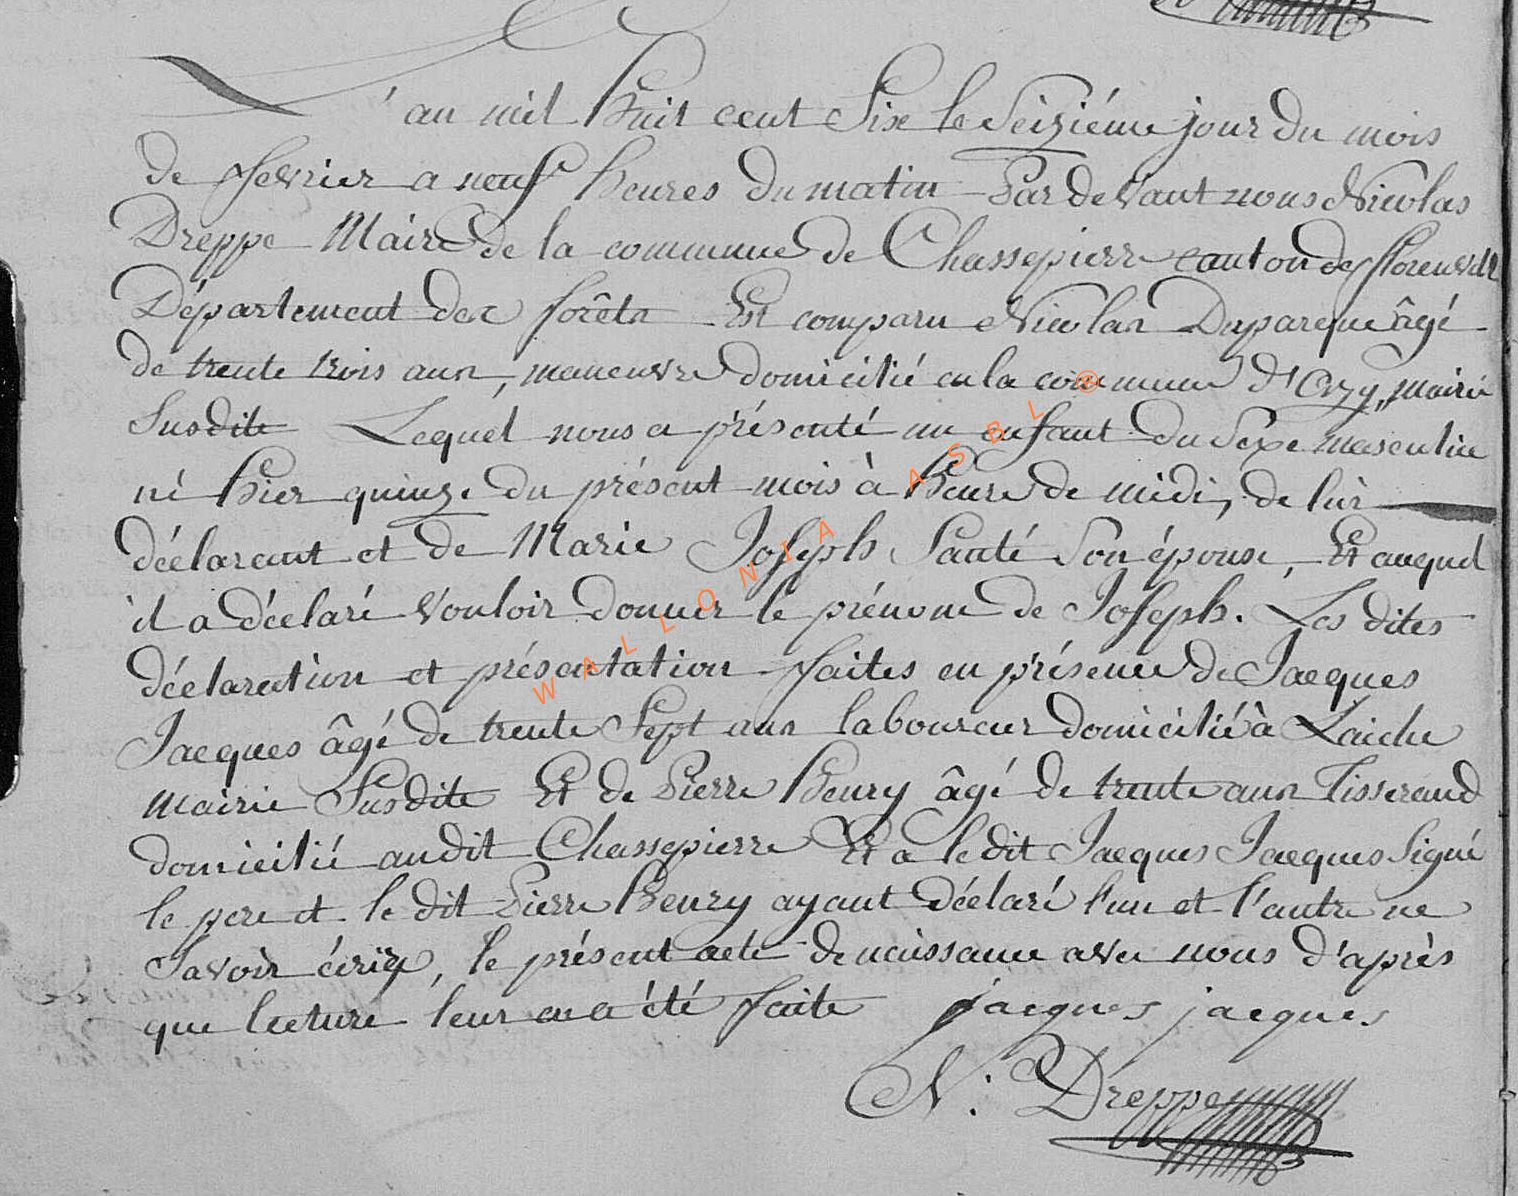 L'an mil huit cent six le seizième jour du mois
de fevrier a neuf heures du matin Par devant nous Nicolas
Dreppe Maire de la commune de Chassepierre canton de florenville
Département des forêts Est comparu Nicolas Duparque âgé
de trente trois ans, maneuvre domicilié en la commune d'Azy, mairie
Susdite Lequel nous a présenté un enfant du Sexe masculin
né hier quinze du présent mois à heure de midi, de lui
déclarant et de Marie Joseph Santé Son épouse, Et auquel
il a déclaré vouloir donner le prénom de Joseph. Les dites
déclaration et présentation faites en présence de Jacques
Jacques âgé de trente Sept ans laboureur domicilié à Laiche
mairie Susdite Et de Pierre Henry âgé de trente ans Tisserand
domicilié audit Chassepierre Et a le dit Jacques Jacques Signé
le pere et le dit Pierre Henry ayant déclaré l'un et l'autre ne
Savoir écrire, le présent acte de naissance avec nous d'après
que lecture leur en a été faite jacques jacques
N. Dreppe
WALLONIA ASBL ®